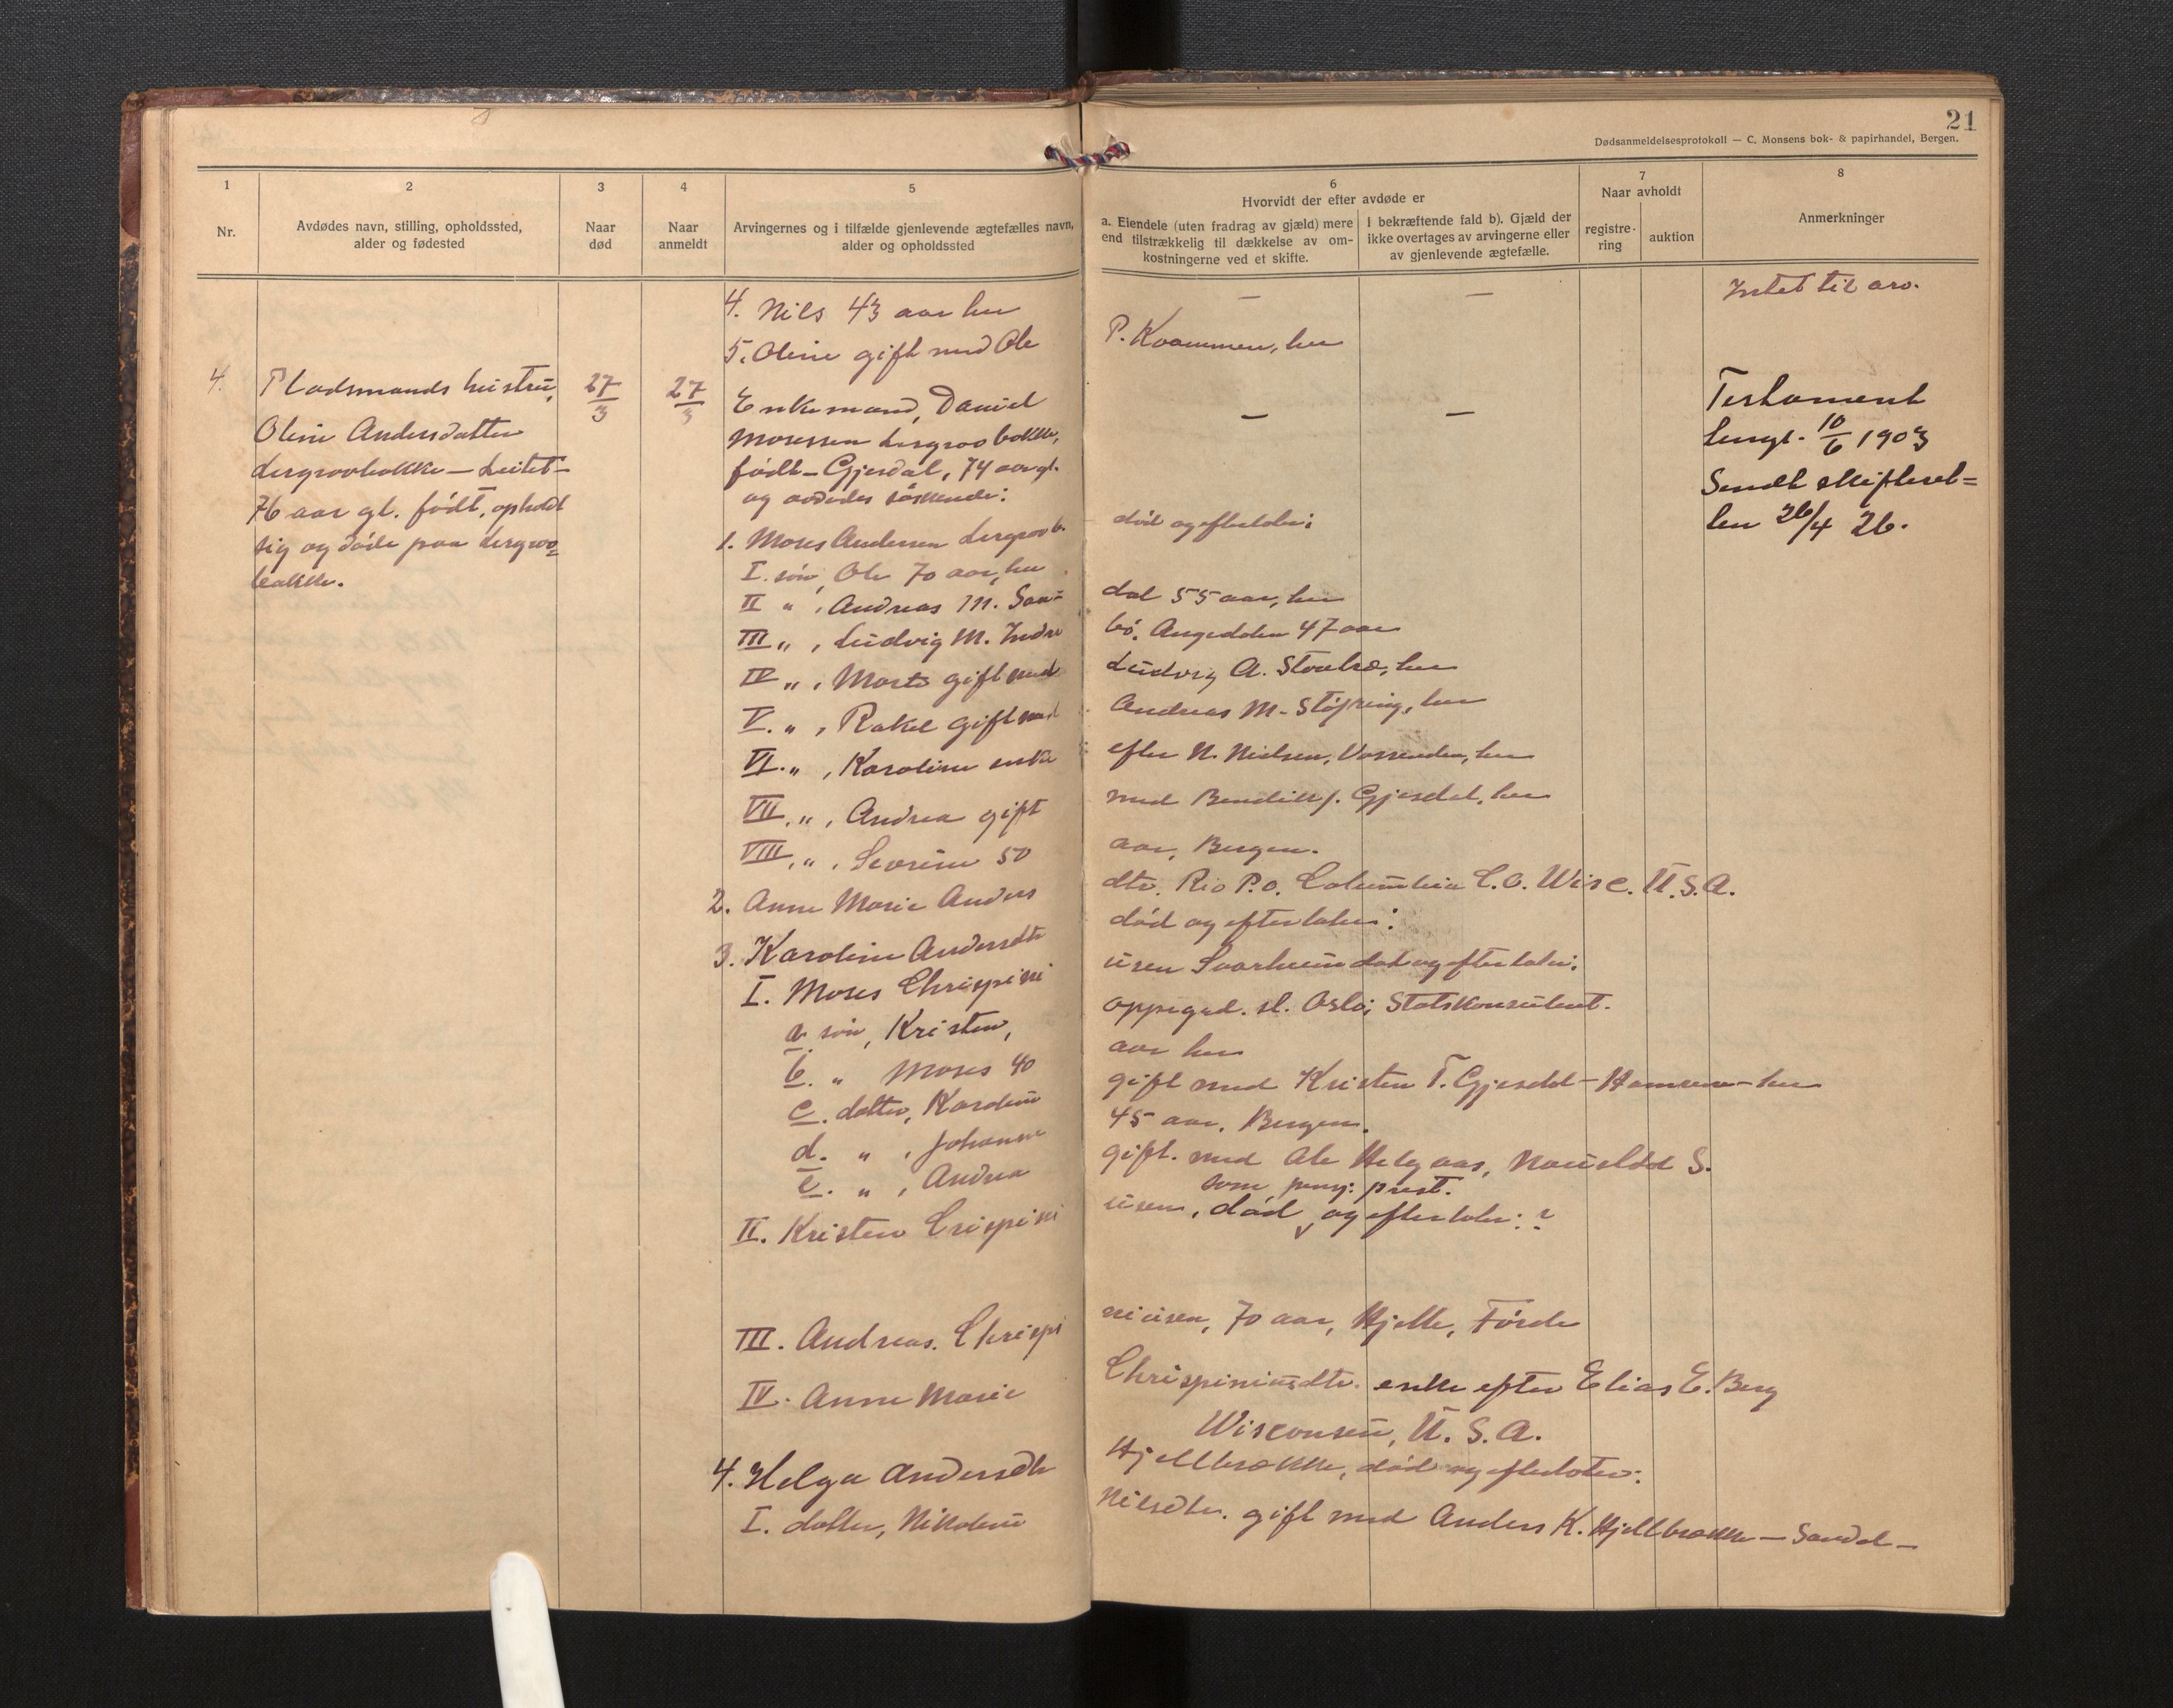 21
Dødsanmeldelsesprotokoll — C. Monsens bok- & papirhandel, Bergen.
1
Nr.
2
Avdødes navn, stilling, opholdssted,
alder og fødested
3
Naar
død
4
Naar
anmeldt
5
Arvingernes og i tilfælde gjenlevende ægtefælles navn,
alder og opholdssted
6
Hvorvidt der efter avdøde er
a. Eiendele (uten fradrag av gjæld) mere
end tilstrækkelig til dækkelse av om-
kostningerne ved et skifte.
I bekræftende fald b). Gjæld der
ikke overtages av arvingerne eller
av gjenlevende ægtefælle.
7
Naar avholdt
registre-
ring
auktion
8
Anmerkninger
4. Nils 43 aar her — — Intet til arv.
5. Oline gift med Ole P. Kvammen, her
4. Pladsmands hustru, 27/3 27/3
Oline Andersdatter
Lergrovbakke — Leitet-
76 aar gl. født, opholdt
sig og døde paa Lergrov=
bakke.
Enkemand, Daniel — —
Mosessen Lergrovbakke,
født — Gjesdal, 74 aar gl.
og avdødes søskende:
Testament
tingl. 10/6 1903
Sendt skifteret=
ten 26/4 26.
1. Moses Andersen Lergrovb. død og efterlater:
I. søn, Ole 70 aar, her
II " , Andreas M. Sau= dal 55 aar, her
III " , Ludvig M. Indre bø, Angedalen 47 aar
IV " , gift med Ludvig A. her
V. " , Rakel gift med Andreas M. Støfring, her
VI. " , Karoline enke efter N. Nielsen, Vassenden, her
VII. " , Andrea gift med Gjesdal, her
VIII. " , Severine 50 aar, Bergen.
2. Anne Marie Anders dtr. Rio P.O. Columbia C.O. Wisc. U.S.A.
3. Karoline Andersdtr død og efterlater:
I. Moses Chrispini usen død og efterlater:
a. søn, Kristen, oppegrd. st. Oslo, Statskonsulent.
b. " Moses 40 aar her
c. datter, Karoline gift med Kristen T. Gjesdal — — her
d. " , Johanne 45 aar, Bergen.
e. " , Andrea gift. med Ole Helgaas, S.
II. Kristen Crispini usen, død som prest. og efterlater: ?
III. Andreas. Chrispi niusen, 70 aar, Hjelle, Førde
IV. Anne Marie Chrispiniusdtr. enke efter Elias E. Berg
Wisconsin, U. S. A.
4. Helga Andersdtr Hjellbrække, død og efterlater:
I. datter, Nikoline Nilsdtr. gift med Anders K. Hjellbrække — Sandal —